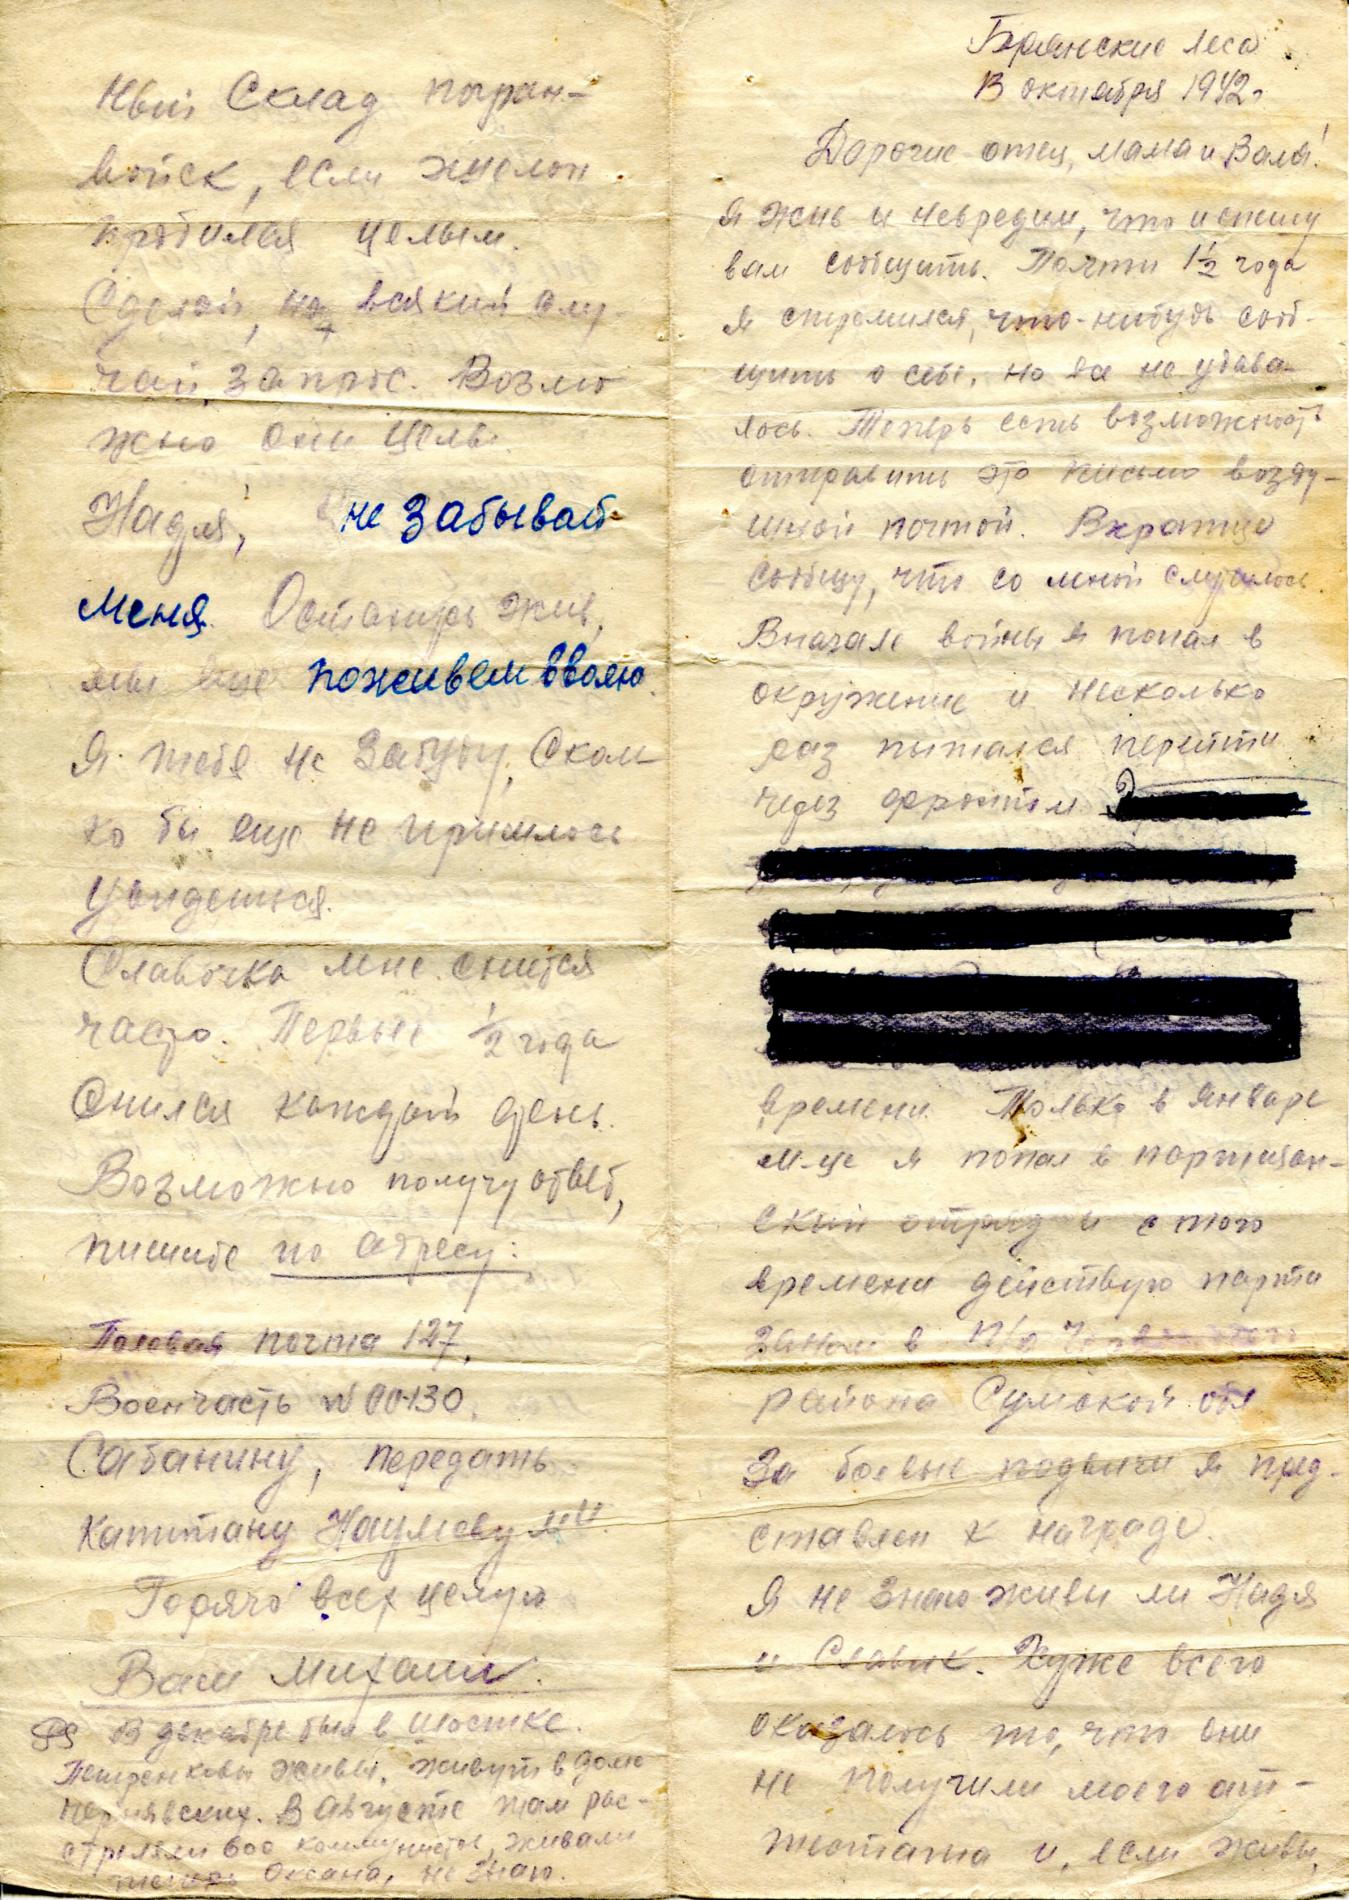 Брянские леса
13 октября 1942г
Дорогие отец, мама и Валя!
Я жив и невредим, что и спешу
вам сообщить. Почти 1½ года
я стремился, что-нибудь сооб-
щить о себе, но все не удава-
лось. Теперь есть возможность
отправить это письмо возду-
шной почтой. Вкратце
сообщу, что со мной случилось
Вначале войны я попал в
окружение и несколько
раз пытался перейти
через фронт
времени. Только в январе
м-це я попал в партизан-
ский отряд и с того
времени действую парти
заном в п/о
района Сумской обл
За боевые подвиги я пред-
ставлен к награде.
Я не знаю живы ли Надя
и Славик. Хуже всего
оказалось то, что они
не получили моего ат-
тестата и, если живы,
ный Склад погран-
войск, если эшелон
пробился целым.
Сделай, на всякий слу-
чай, запрос. Возмо
жно они целы.
Надя, не забывай
меня. Останусь жив,
мы еще поживем вволю.
Я тебя не забуду, Сколь
ко бы еще не пришлось
увидеться.
Славочка мне снится
часто. Первые ½ года
Снился каждый день.
Возможно получу ответ,
пишите по адресу:
Полевая почта 127,
Военчасть № 00130.
Сабанину, передать
капитану Наумову М.И.
Горячо всех целую
Ваш Михаил.
PS В декабре был в Шостке.
живы, живут в доме
Чернявских. В Августе там рас-
стреляли 600 коммунистов,
Оксана, не знаю.